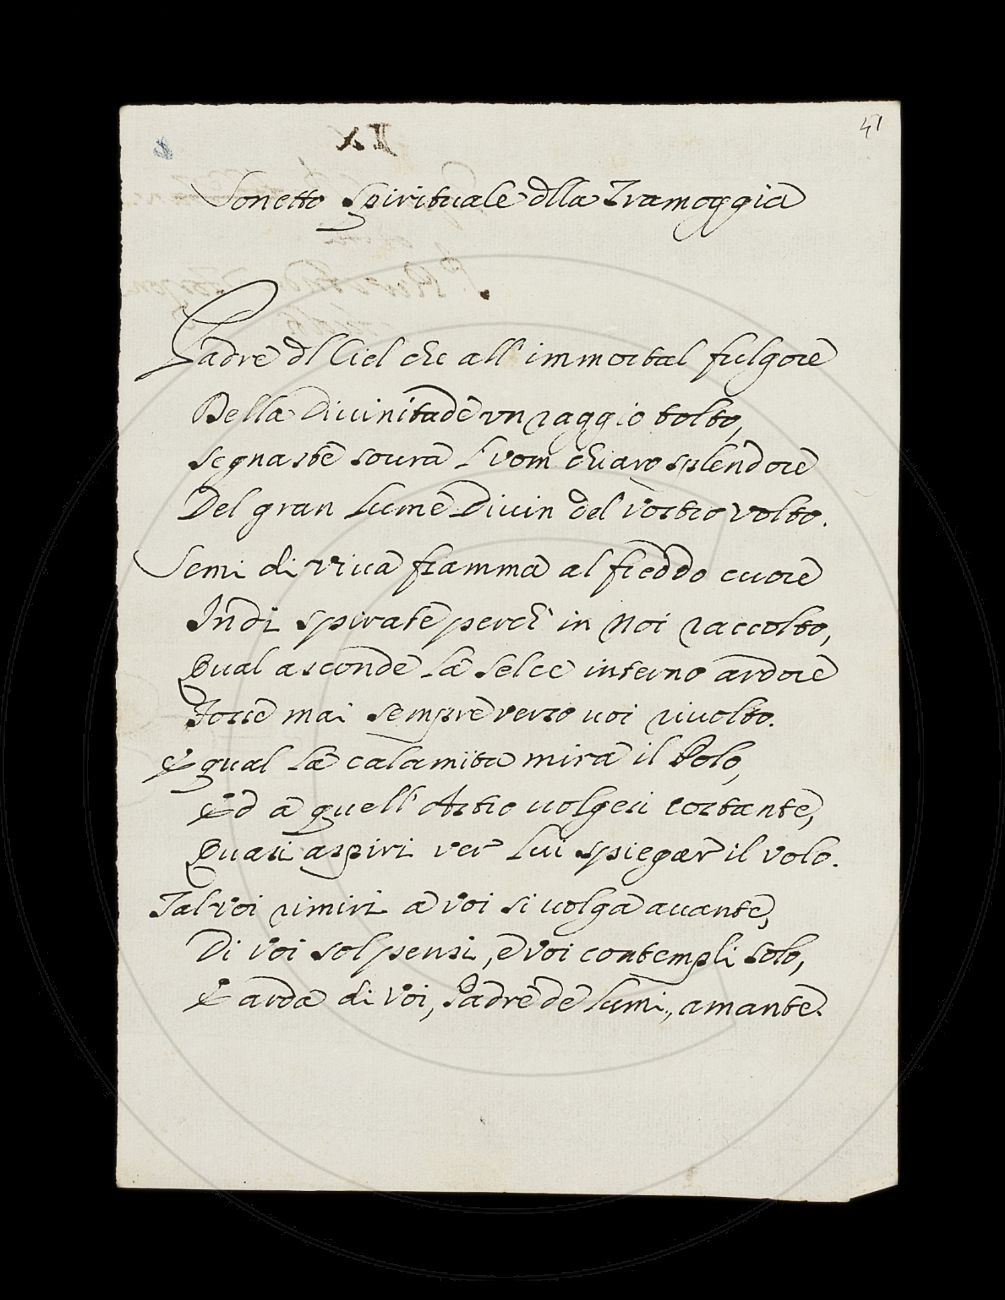 41
Sonetto Spirituale dlla Tramoggia
Padre dl Ciel che all' immortal fulgore
Della Diuinitade vn raggio tolto,
segnaste soura l'vom chiaro splendore
Del gran Lume Diuin del vostro volto.
Semi di viua fiamma al freddo cuore
Indi spirate perch' in noi raccolto,
Qual asconde la selce interno ardore
Fosse mai sempre verso uoi riuolto.
E qual la calamita mira il Polo,
Ed a quell' Astro uolgesi costante,
Quasi aspiri ver lui spiegar il volo.
Tal voi rimiri a voi si uolga auante,
Di voi sol pensi, e voi contempli solo,
E arda di voi, Padre de lumi, amante.